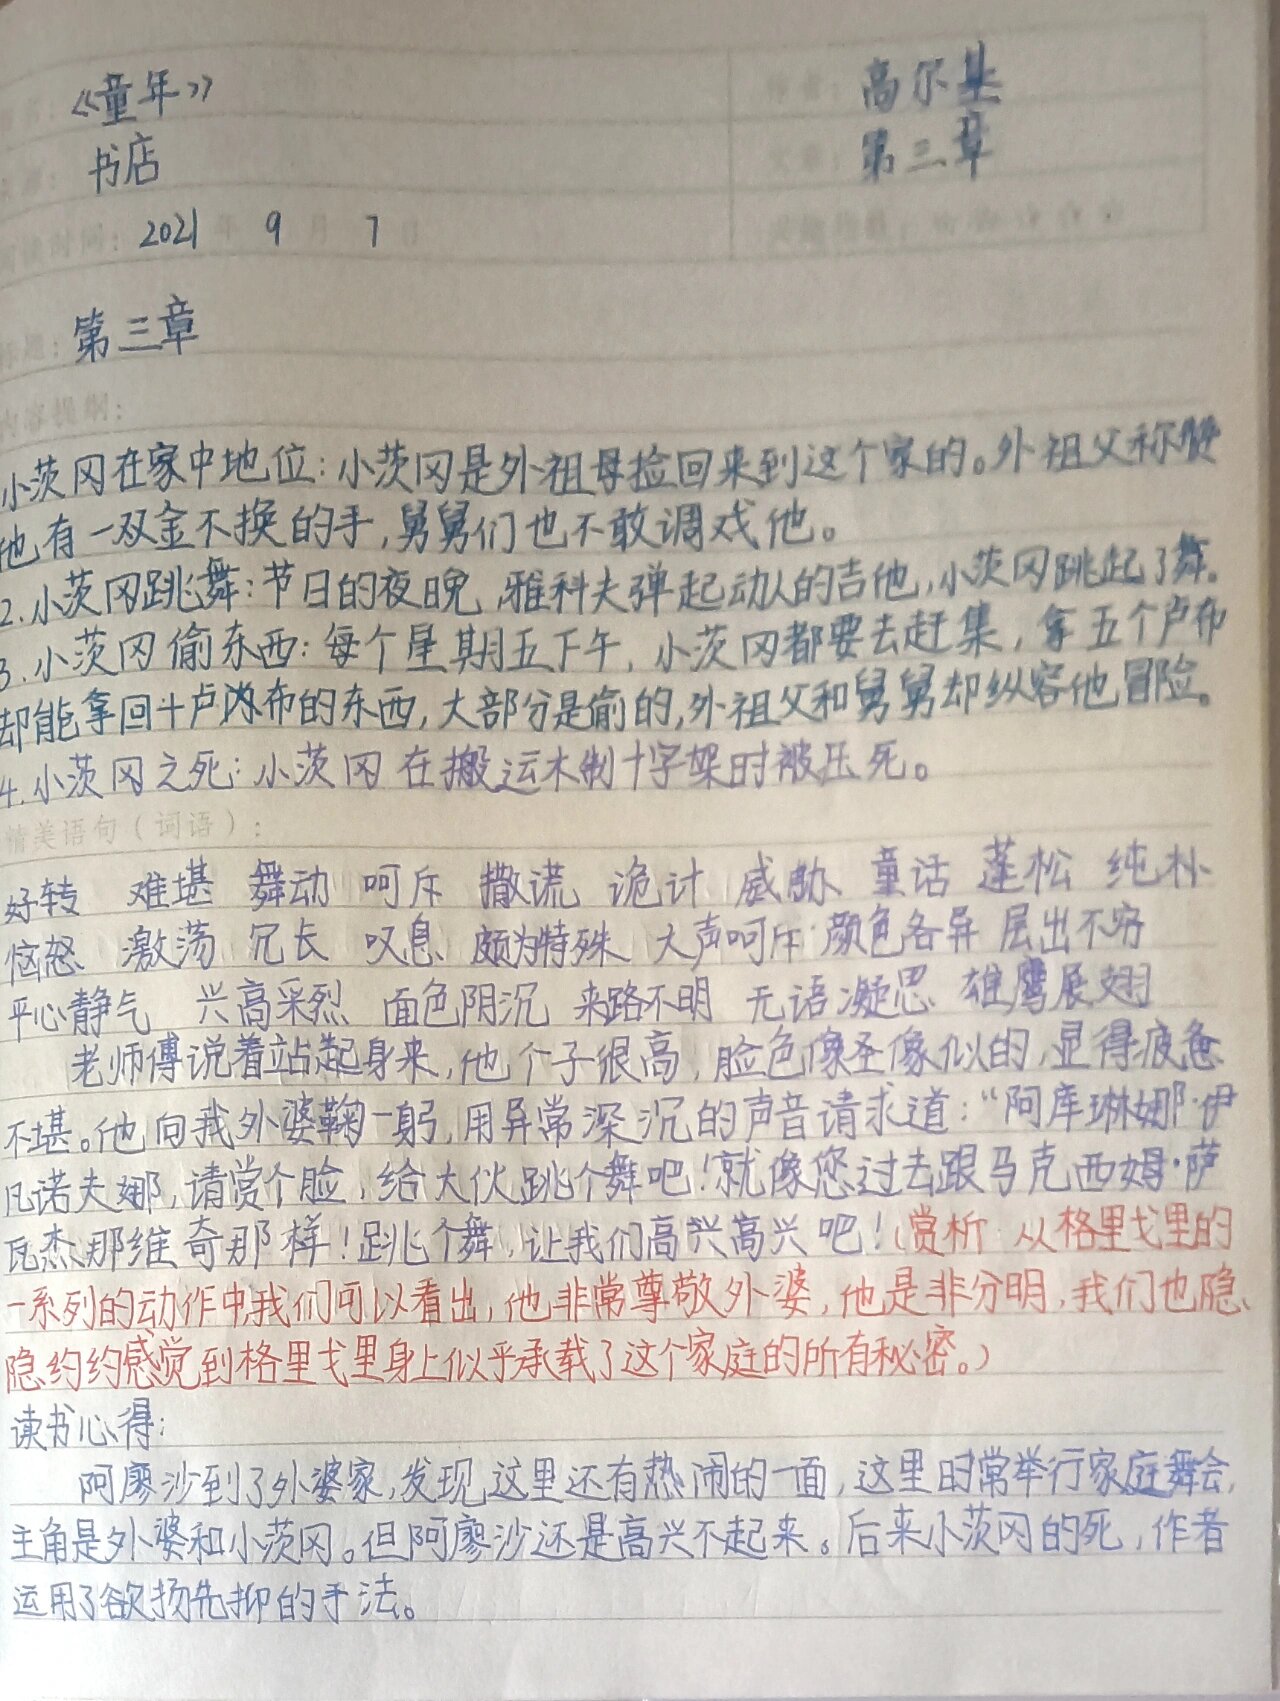 《童年》 高尔基
书店 第三章
阅读时间: 2021年 9月 7日
标题: 第三章
内容提纲:
小茨冈在家中地位:小茨冈是外祖母捡回来到这个家的。外祖父称赞
他有一双金不换的手,舅舅们也不敢调戏他。
2.小茨冈跳舞:节日的夜晚,雅科夫弹起动人的吉他,小茨冈跳起了舞。
3.小茨冈偷东西:每个星期五下午,小茨冈都要去赶集,拿五个卢布
却能拿回十卢布的东西,大部分是偷的,外祖父和舅舅却纵容他冒险。
4.小茨冈之死:小茨冈在搬运木制十字架时被压死。
精美语句(词语):
好转 难堪 舞动 呵斥 撒谎 诡计 威胁 童话 蓬松 纯朴
恼怒 激荡 冗长 叹息 颇为特殊 大声呵斥 颜色各异 层出不穷
平心静气 兴高采烈 面色阴沉 来路不明 无语凝思 雄鹰展翅
老师傅说着站起身来,他个子很高,脸色像圣像似的,显得疲惫
不堪。他向我外婆鞠一躬,用异常深沉的声音请求道:“阿库琳娜·伊
凡诺夫娜,请赏个脸,给大伙跳个舞吧!就像您过去跟马克西姆·萨
瓦杰那维奇那样!跳个舞,让我们高兴高兴吧!(赏析 从格里戈里的
一系列的动作中,我们可以看出,他非常尊敬外婆,他是非分明,我们也隐
隐约约感觉到格里戈里身上似乎承载了这个家庭的所有秘密。)
读书心得:
阿廖沙到了外婆家,发现这里还有热闹的一面,这里时常举行家庭舞会,
主角是外婆和小茨冈。但阿廖沙还是高兴不起来。后来小茨冈的死,作者
运用了欲扬先抑的手法。